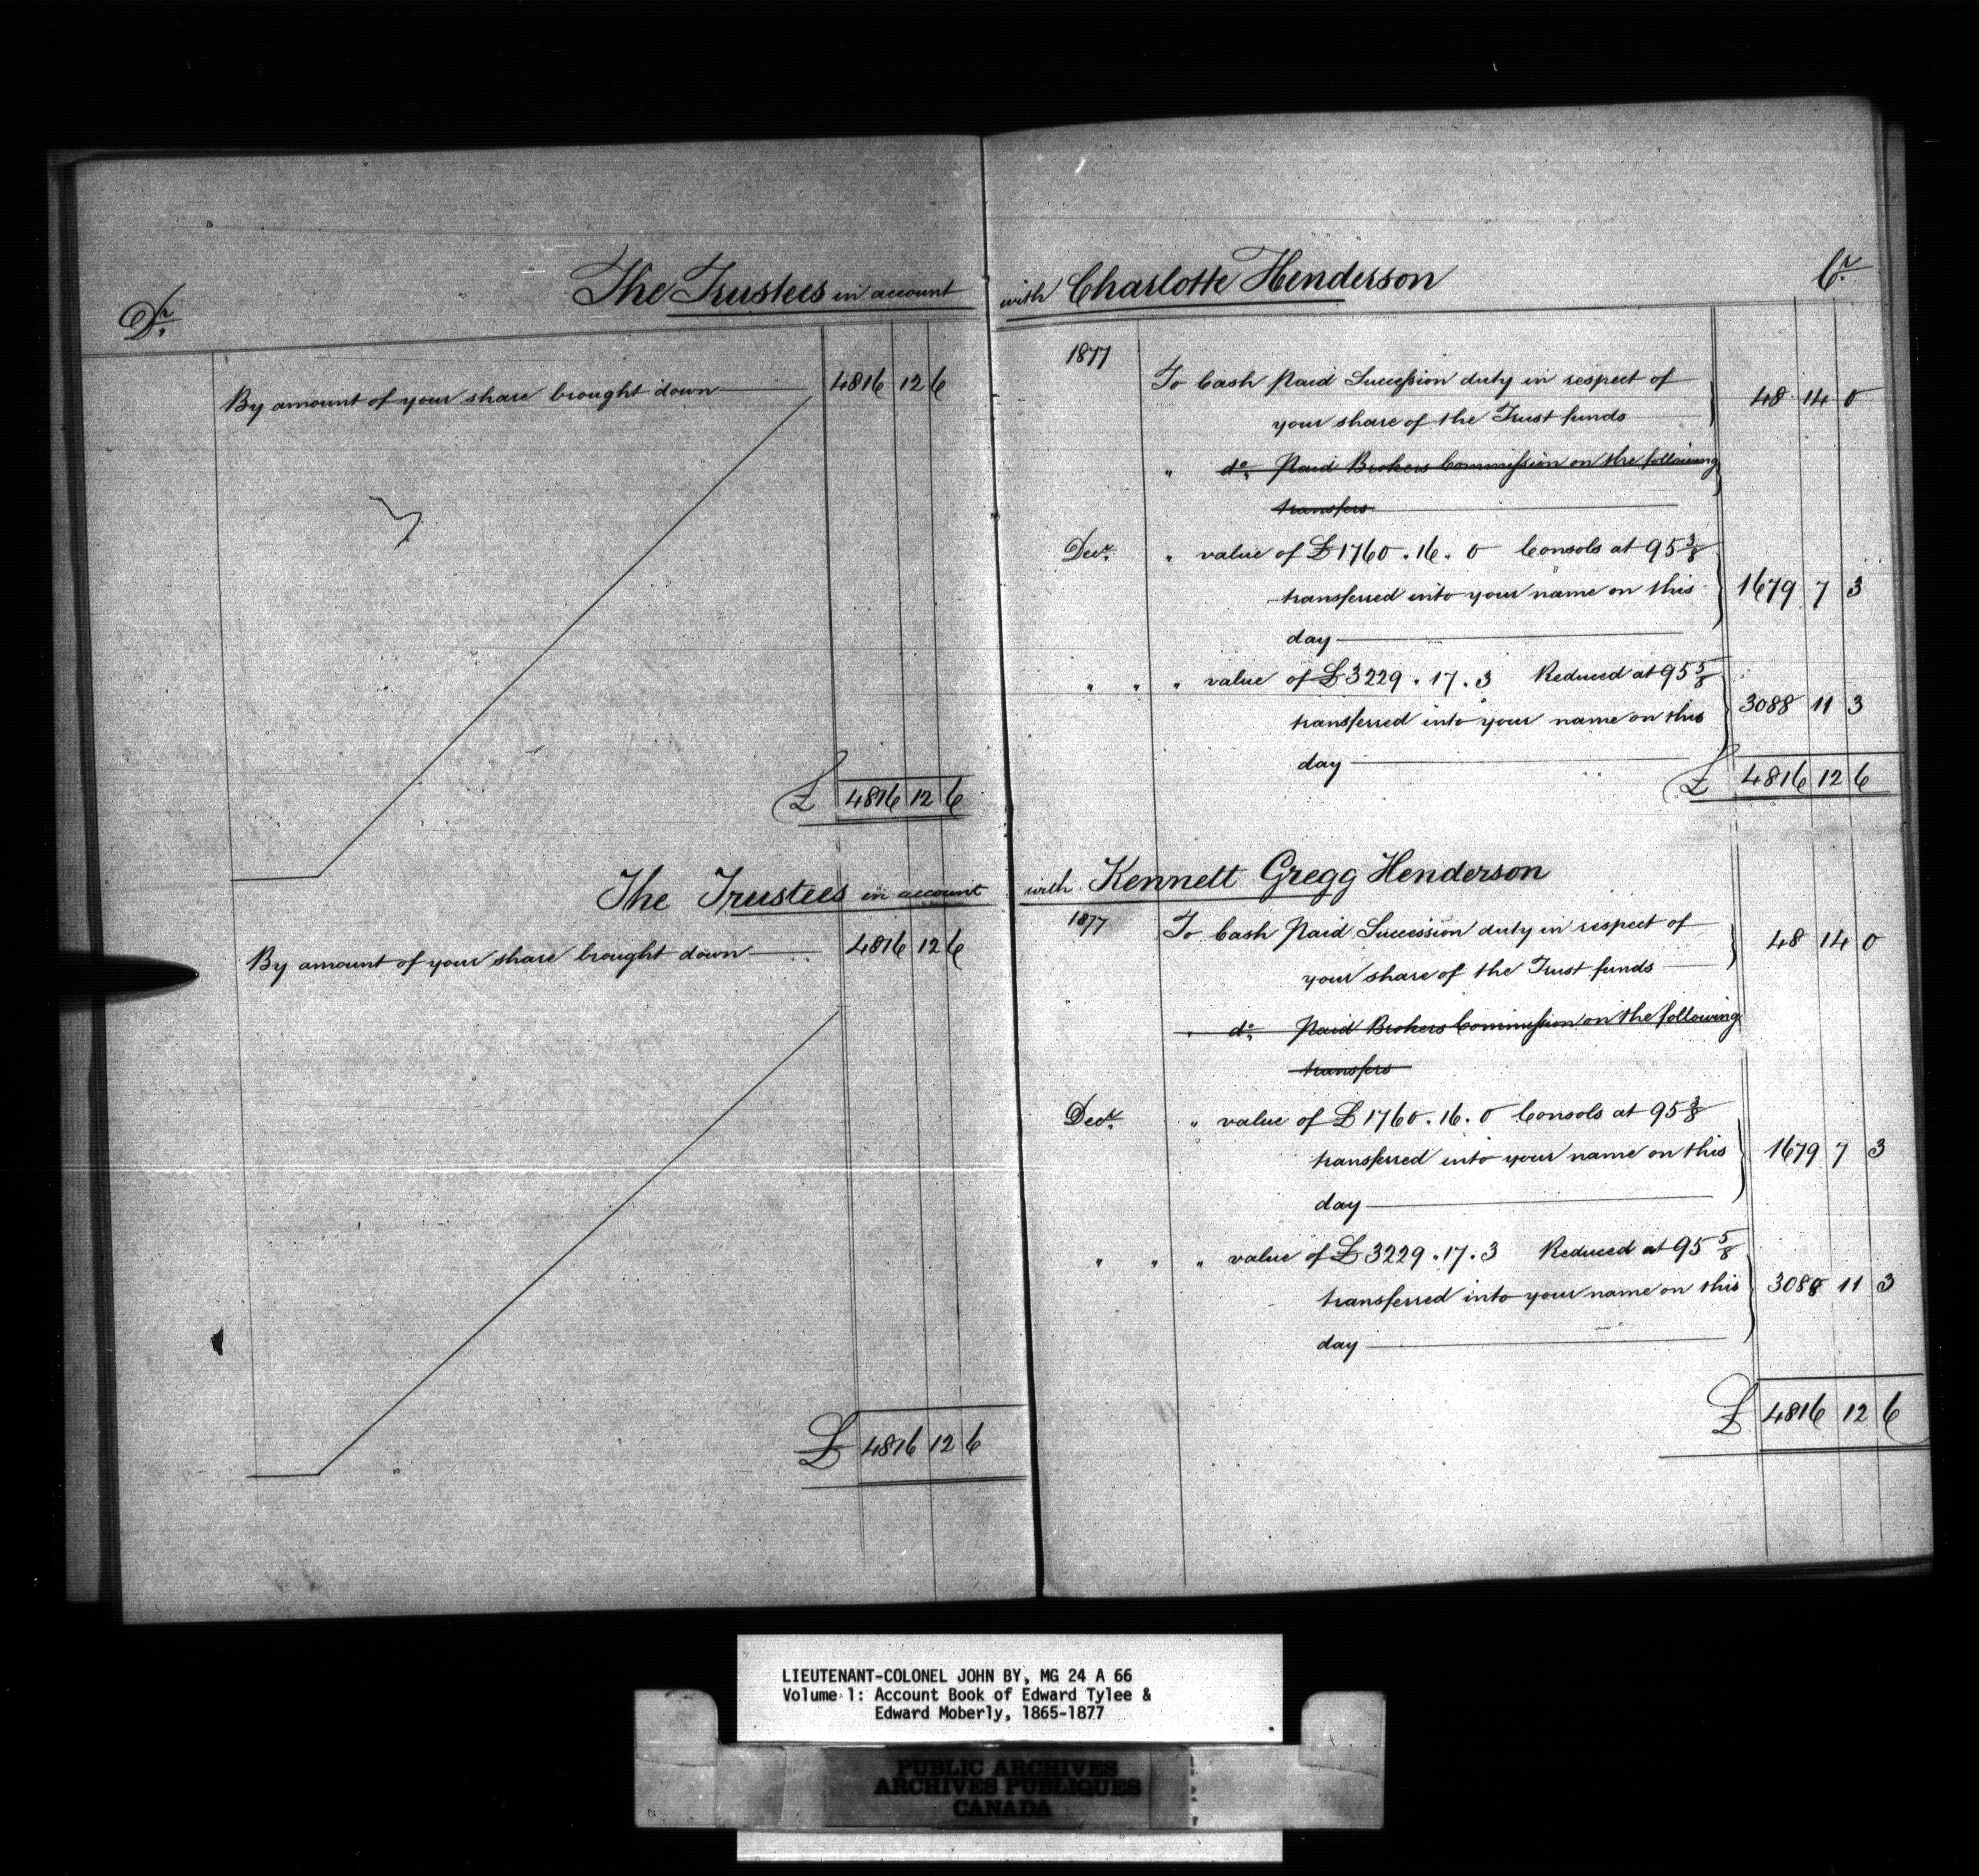 The Trustees in account with Charlotte Henderson
Dr.
Cr.
By amount of your share brought down 4816 12 6
£ 4816 12 6
1877
To Cash Paid Succession duty in respect of
your share of the Trust funds 48 14 0
" do. Paid Brokers Commission on the following
transfers
Decr. " value of £1760.16.0 Consols at 95 3/8
transferred into your name on this 1679 7 3
day
" " " value of £3229.17.3 Reduced at 95 5/8
transferred into your name on this 3088 11 3
day
£ 4816 12 6
The Trustees in account with Kennett Gregg Henderson
By amount of your share brought down 4816 12 6
£ 4816 12 6
1877 To Cash Paid Succession duty in respect of
your share of the Trust funds 48 14 0
" do. Paid Brokers Commission on the following
transfers
Decr. " value of £1760.16.0 Consols at 95 3/8
transferred into your name on this 1679 7 3
day
" " " value of £3229.17.3 Reduced at 95 5/8
transferred into your name on this 3088 11 3
day
£ 4816 12 6
LIEUTENANT-COLONEL JOHN BY, MG 24 A 66
Volume 1: Account Book of Edward Tylee &
Edward Moberly, 1865-1877
PUBLIC ARCHIVES
ARCHIVES PUBLIQUES
CANADA